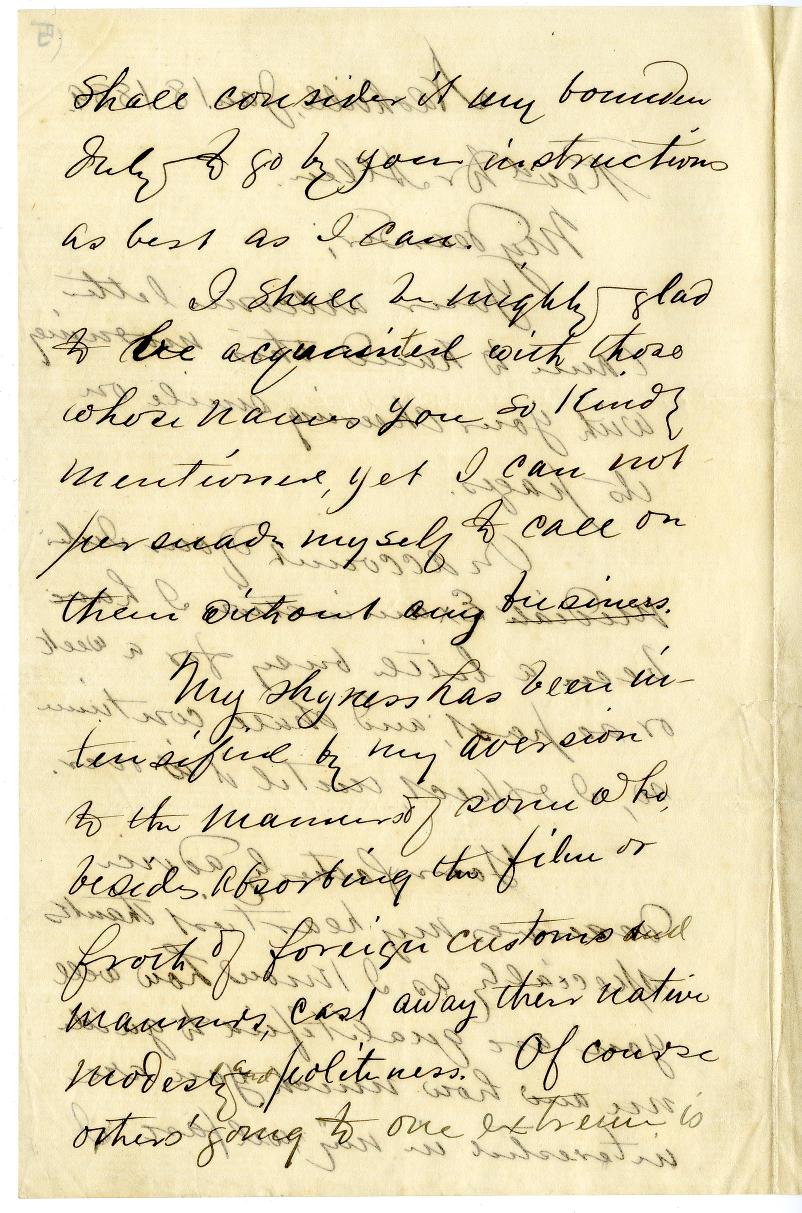 shall consider it my bounden
duty to go by your instructions
as best as I can.
I shall be mighty glad
to be acquainted with those
whose names you so kindly
mentioned, yet I can not
persuade myself to call on
them without any business.
My shyness has been in-
tensified by my aversion
to the manners of some who,
besides absorbing the film or
froth of foreign customs and
manners, cast away their native
modesty and politeness. Of course
others' going to one extreme is